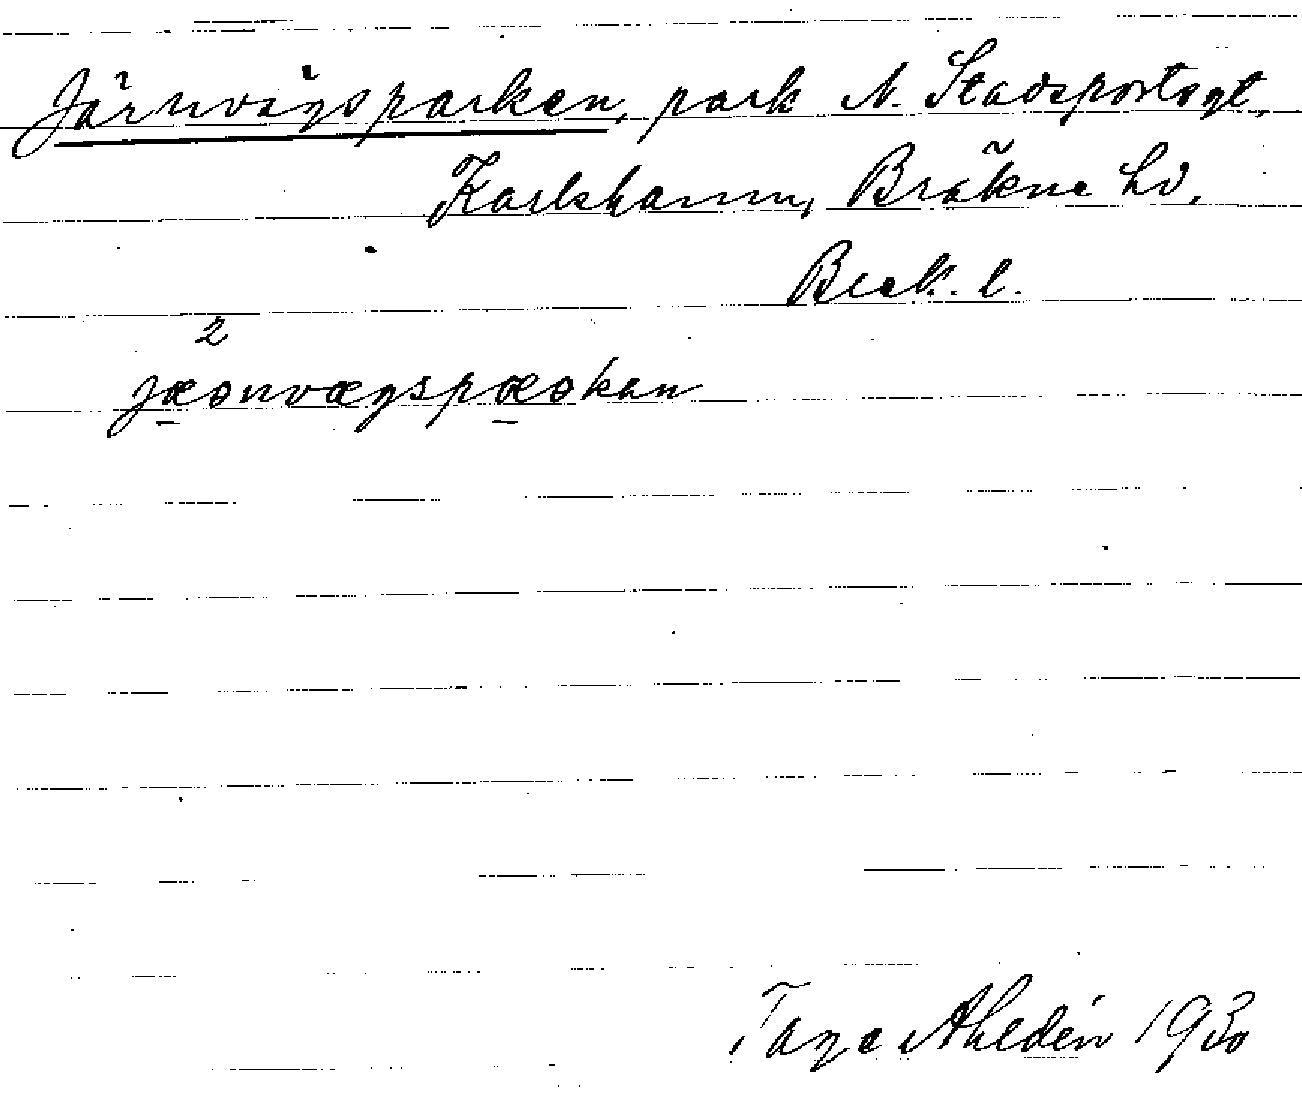 Järnvägsparken, park N. Stadsportsgt,
Karlshamn, Bräkne hd,
Blek. l.
2
jæɵnvægspæɵkən
Tage Ahldén 1930